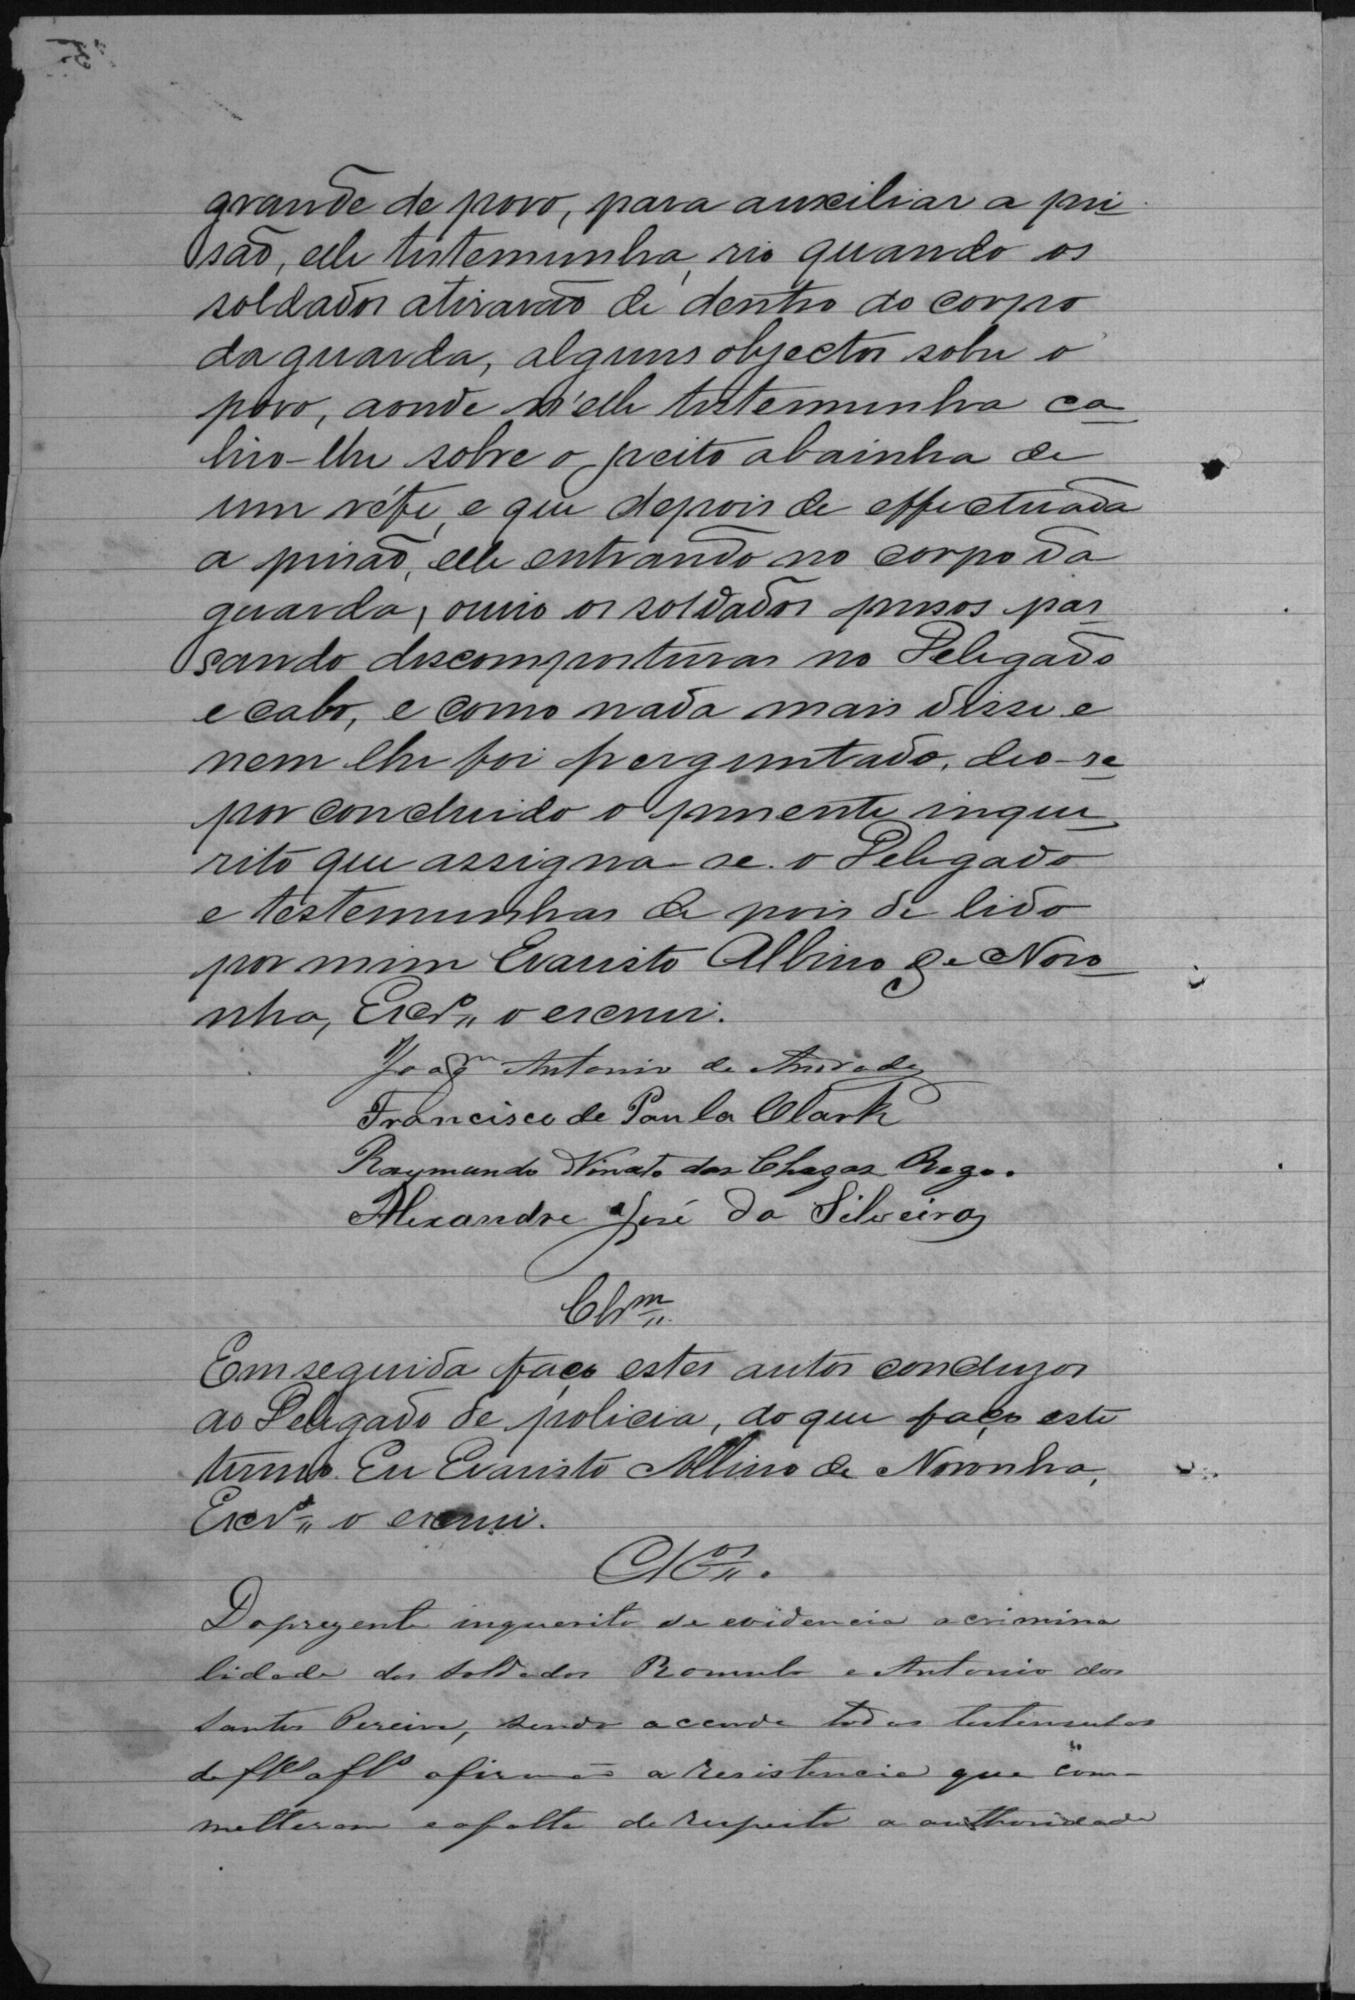 grande de povo, para auxiliar a pri
são, elle testemunha, vio quando os
soldados atiravão de dentro do corpo
da guarda, alguns objectos sobre o
povo, aonde n'elle testemunha ca
hio-lhe sobre o peito abainha de
um réfe, e que depois de effectuada
a prisão, elle entrando no corpo da
guarda, ouvio os soldados presos pas
sando descomposturas no Delegado
e cabo, e como nada mais disse e
nem lhe foi perguntado, deo-se
por concluido o presente inque
rito que assigna-se o Delegado
e testemunhas de pois de lido
por mim Evaristo Albino de Noro
nha, Escr.º o escrevi.
Joaq.m Antonio de Andrade
Francisco de Paula Clark
Raymundo Nonato das Chagas Rego.
Alexandre José da Silveira
Clsm.
Em seguida faço estes autos concluzos
ao Delegado de policia, do que faço este
termo. Eu Evaristo Albino de Noronha,
Escr.º o escrevi.
Clsos.
Do prezente inquerito se evidencia a crimina
lidade dos soldados Romulo e Antonio dos
Santos Pereira, sendo acorde todas testemunhas
de fls a fls afirmão a resistencia que com-
metteram e a falta de respeito a authoridade